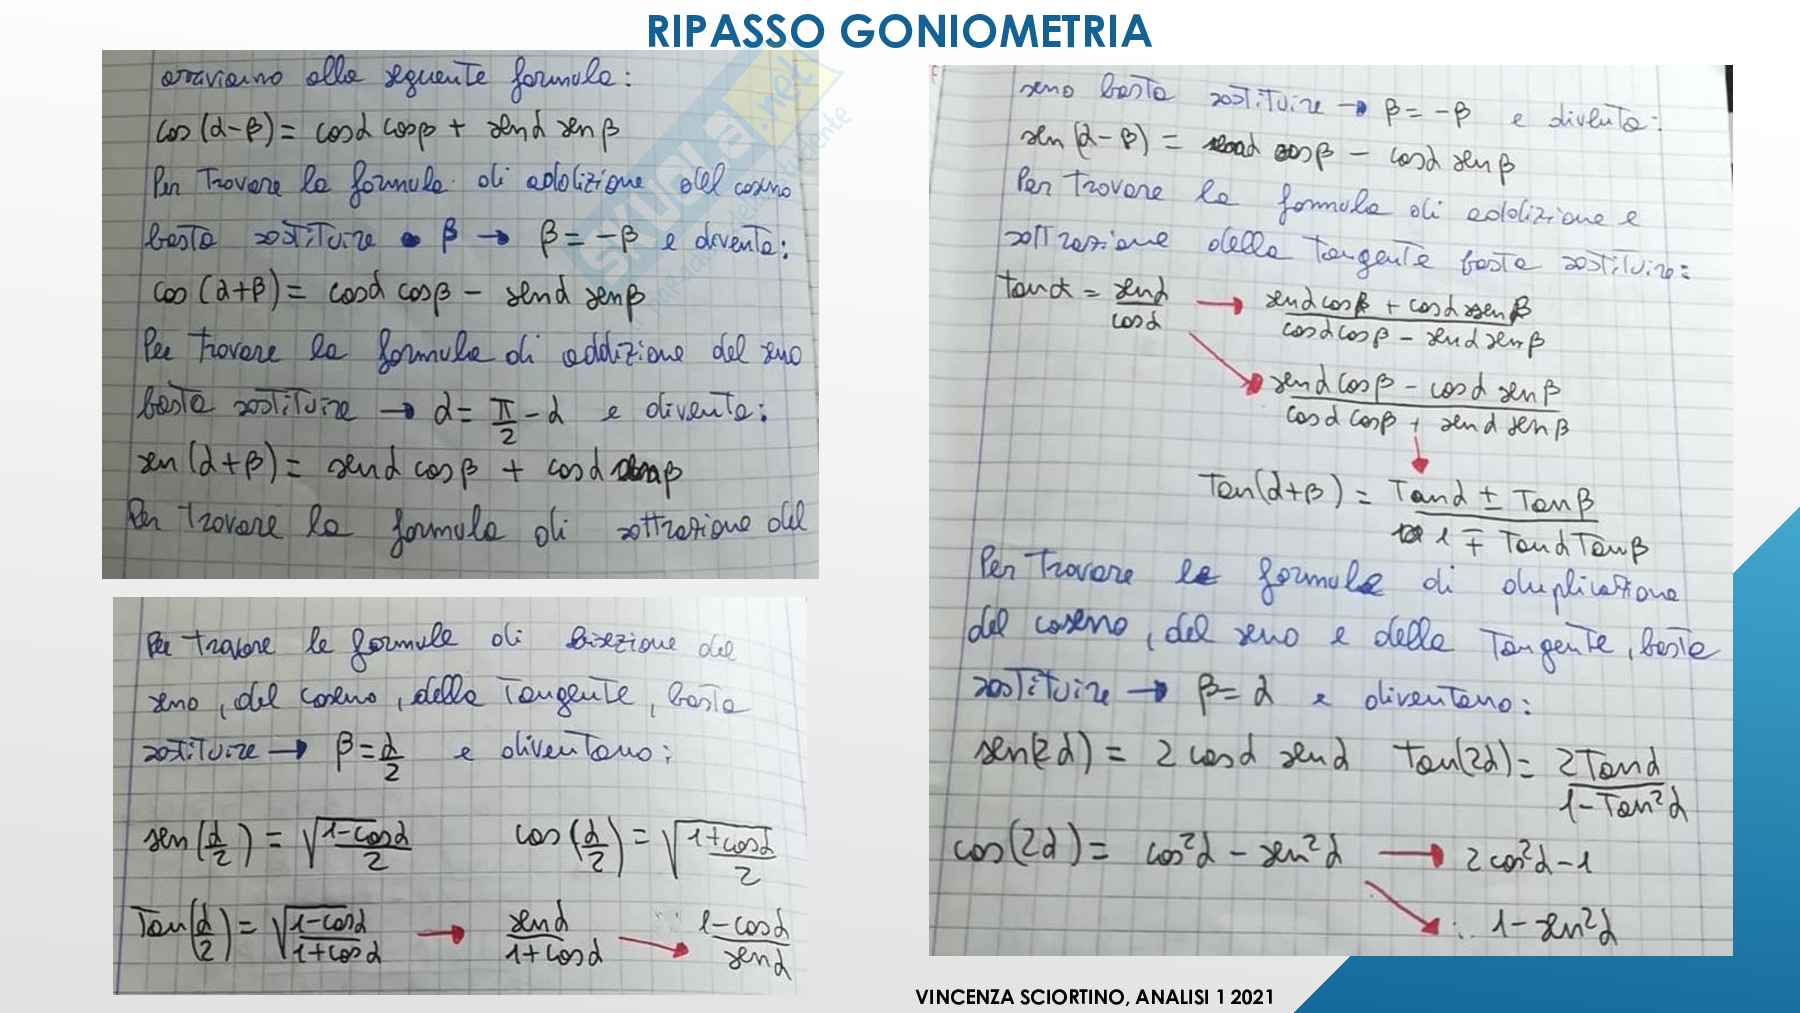 RIPASSO GONIOMETRIA
arraviamo alla seguente formula:
cos(α-β) = cosα cosβ + senα senβ
Per trovare la formula di addizione del coseno
basta sostituire β → β = -β e diventa:
cos(α+β) = cosα cosβ - senα senβ
Per trovare la formula di addizione del seno
basta sostituire → α = π/2 - α e diventa:
sen(α+β) = senα cosβ + cosα senβ
Per trovare la formula di sottrazione del
seno basta sostituire → β = -β e diventa:
sen(α-β) = senα cosβ - cosα senβ
Per trovare la formula di addizione e
sottrazione della tangente basta sostituire:
tanα = senα/cosα → (senα cosβ + cosα senβ)/(cosα cosβ - senα senβ)
(senα cosβ - cosα senβ)/(cosα cosβ + senα senβ)
Tan(α+β) = (Tanα ± Tanβ)/(1 ∓ Tanα Tanβ)
Per trovare le formule di duplicazione
del coseno, del seno e della Tangente, basta
sostituire → β = α e diventano:
sen(2α) = 2 cosα senα Tan(2α) = 2Tanα/(1-Tan²α)
cos(2α) = cos²α - sen²α → 2cos²α-1
1-sen²α
Per trovare le formule di bisezione del
seno, del coseno, della Tangente, basta
sostituire → β = α/2 e diventano:
sen(α/2) = √((1-cosα)/2) cos(α/2) = √((1+cosα)/2)
Tan(α/2) = √((1-cosα)/(1+cosα)) → senα/(1+cosα) → (1-cosα)/senα
VINCENZA SCIORTINO, ANALISI 1 2021
SKUOLA.net